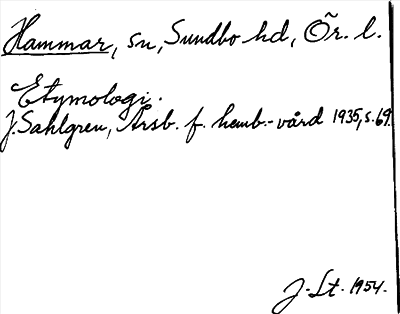 Hammar, sn, Sundbo hd, Ör. l.
Etymologi.
J. Sahlgren, Årsb. f. hemb.-vård 1935, s. 69.
J. Lt. 1954.